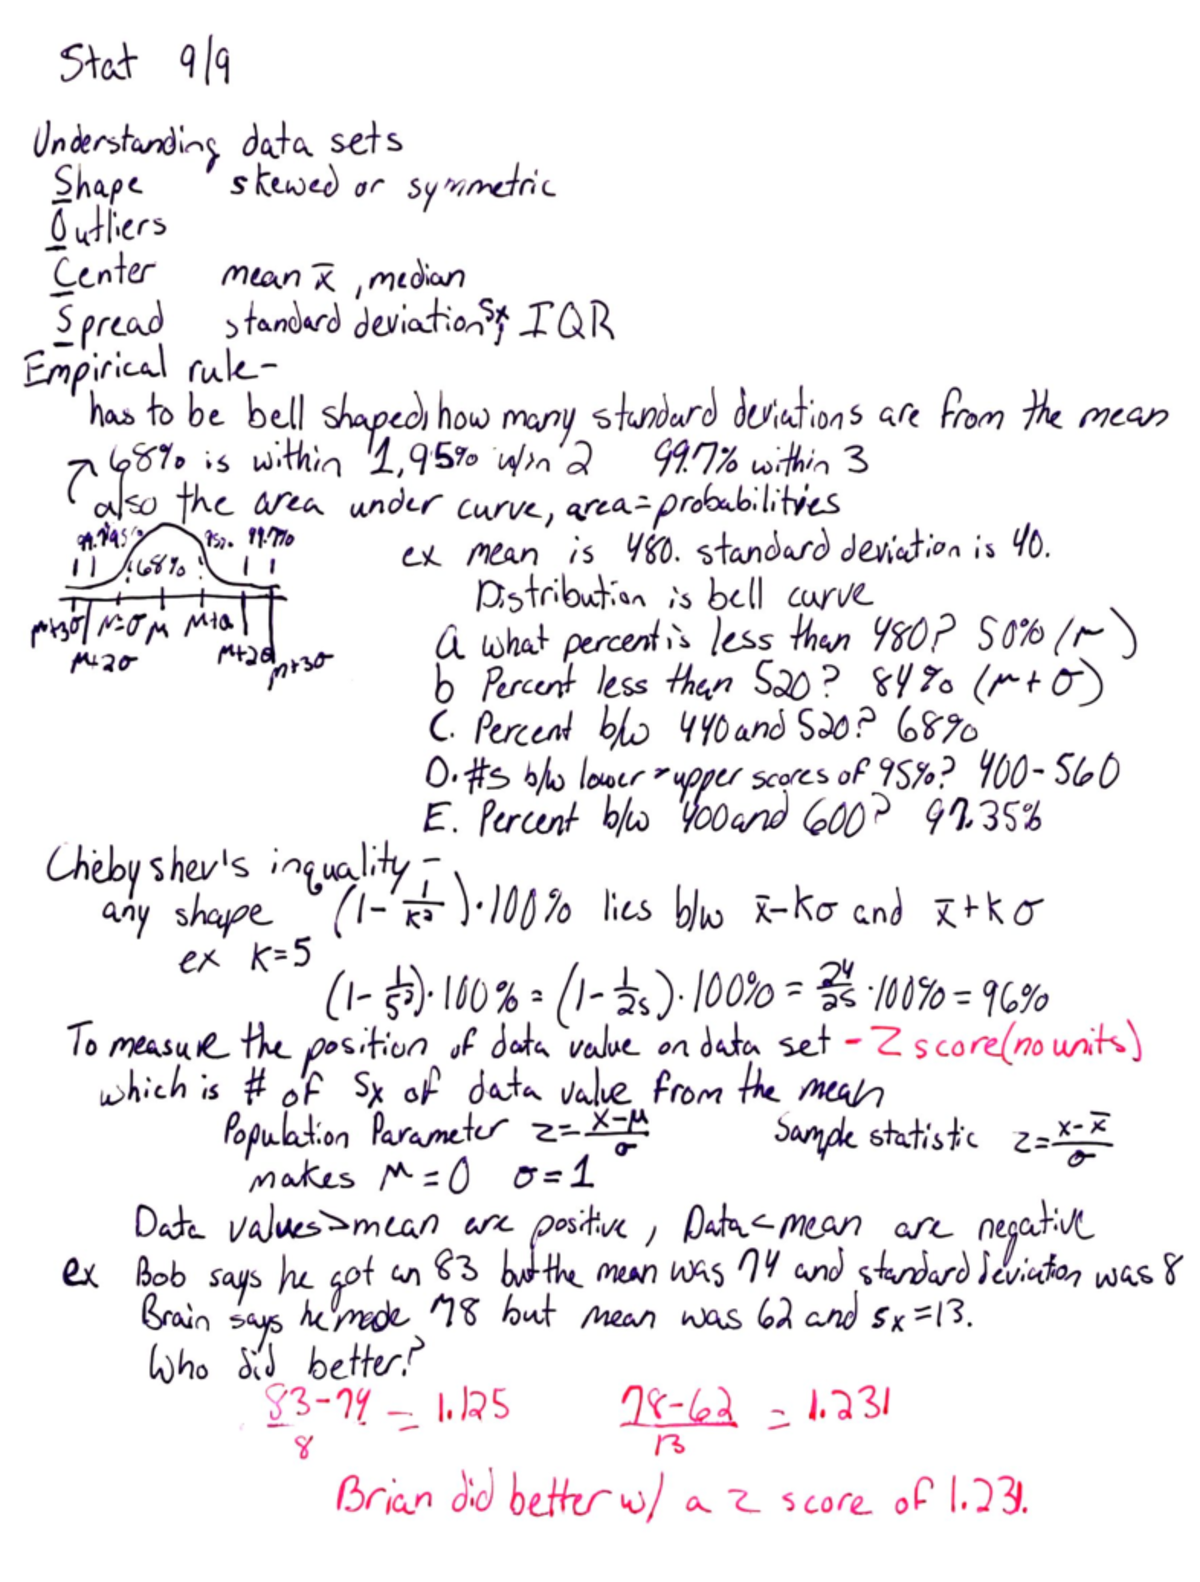 Stat 9/9
Understanding data sets
Shape skewed or symmetric
Outliers
Center mean x̄, median
Spread standard deviation Sx, IQR
Empirical rule-
has to be bell shaped, how many standard deviations are from the mean
68% is within 1, 95% w/in 2 99.7% within 3
also the area under curve, area=probabilities
99.7 95% 68% 95% 99.7%
μ+3σ μ-σ μ μ+σ
μ+2σ μ+2σ μ+3σ
ex mean is 480. standard deviation is 40.
Distribution is bell curve
a what percent is less than 480? 50% (μ)
b Percent less than 520? 84% (μ+σ)
C. Percent b/w 440 and 520? 68%
D. #s b/w lower & upper scores of 95%? 400-560
E. Percent b/w 400 and 600? 97.35%
Chebyshev's inquality-
any shape (1-1/K²)·100% lies b/w x̄-Kσ and x̄+Kσ
ex K=5
(1-1/5²)·100% = (1-1/25)·100% = 24/25·100% = 96%
To measure the position of data value on data set - Z score (no units)
which is # of Sx of data value from the mean
Population Parameter z=x-μ/σ Sample statistic z=x-x̄/σ
makes μ=0 σ=1
Data values>mean are positive, Data<mean are negative
ex Bob says he got an 83 but the mean was 74 and standard deviation was 8
Brain says he made 78 but mean was 62 and Sx=13.
Who did better?
83-74/8 = 1.125 78-62/13 = 1.231
Brian did better w/ a z score of 1.231.